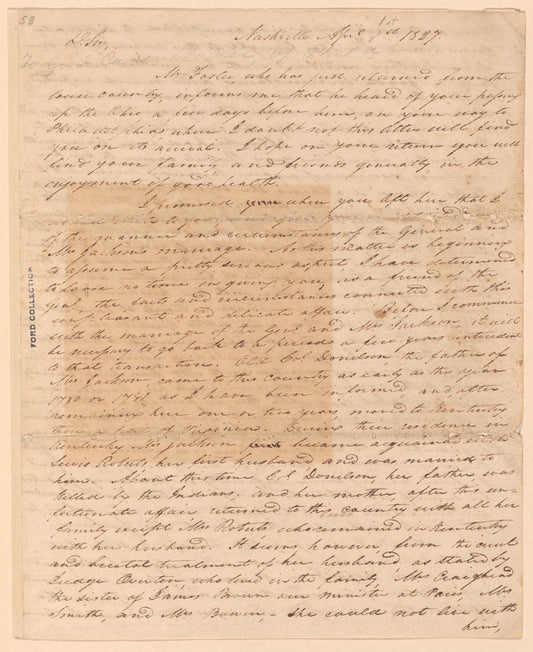 58
Nashville April 1st 1827.
Dr Sir,
Mr Foster who has just returned from the
lower country, informs me that he heard of your passing
up the Ohio a few days before him, on your way to
Philadelphia where I doubt not this letter will find
you on its arrival. I hope on your return you will
find your family and friends generally in the
enjoyment of good health.
I promised you when you left here that I
would write to you and
of the manner and circumstances of the General and
Mrs Jackson's marriage. As this matter is beginning
to assume a pretty serious aspect, I have determined
to lose no time in giving you, as a friend of the
Genl, the facts and circumstances connected with this
unpleasant and delicate affair. Before I commence
with the marriage of the Genl and Mrs Jackson, it will
be necessary to go back to a period a few years antecedent
to that transaction. Old Col Donelson the father of
Mrs Jackson, came to this country as early as the year
1780 or as I have been informed and after
remaining here one or two years, moved to Kentucky
then a part of Virginia. During their residence in
Kentucky Mrs Jackson became acquainted with
Lewis Roberts, her first husband and was married to
him. About this time Col Donelson, her father was
killed by the Indians, and her mother after this un-
fortunate affair returned to this country with all her
family except Mrs Roberts who remained in Kentucky
with her husband. It seems, however, from the cruel
and brutal treatment of her husband, as stated by
Judge Overton who lived in the family, Mrs Craighead
the sister of James Brown our minister at Paris, Mrs
Smith, and Mrs Bowen, - she could not live with
him,
FORD COLLECTION